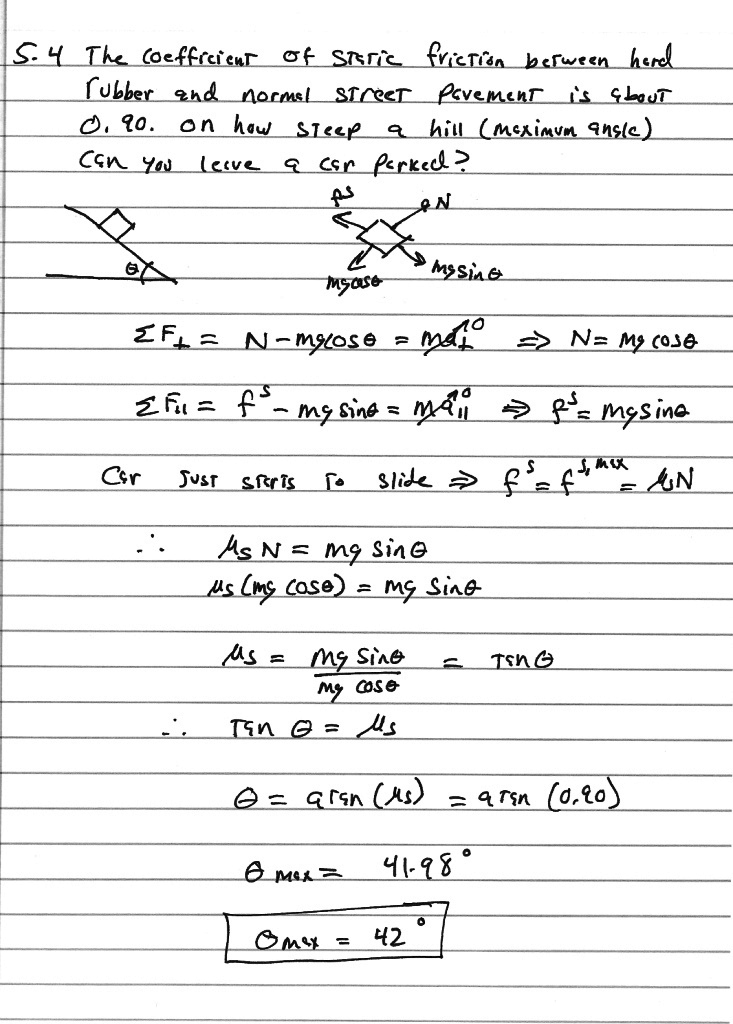 5.4 The coefficient of static friction between hard
rubber and normal street pavement is about
0.90. on how steep a hill (maximum angle)
can you leave a car parked?
fˢ N
θ mg cosθ mg sinθ
ΣF⊥ = N - mg cosθ = ma⊥ 0 ⇒ N = mg cosθ
ΣF∥ = fˢ - mg sinθ = ma∥ 0 ⇒ fˢ = mg sinθ
Car just starts to slide ⇒ fˢ = fˢ,ᵐᵃˣ = μsN
∴ μs N = mg sinθ
μs (mg cosθ) = mg sinθ
μs = mg sinθ = tanθ
mg cosθ
∴ tan θ = μs
θ = atan (μs) = atan (0.90)
θ max = 41.98°
θmax = 42°